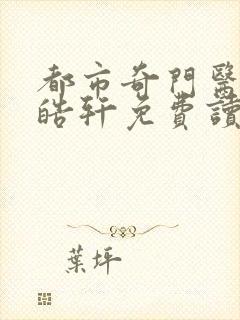 都市奇門醫
皓軒免費讀
葉坪